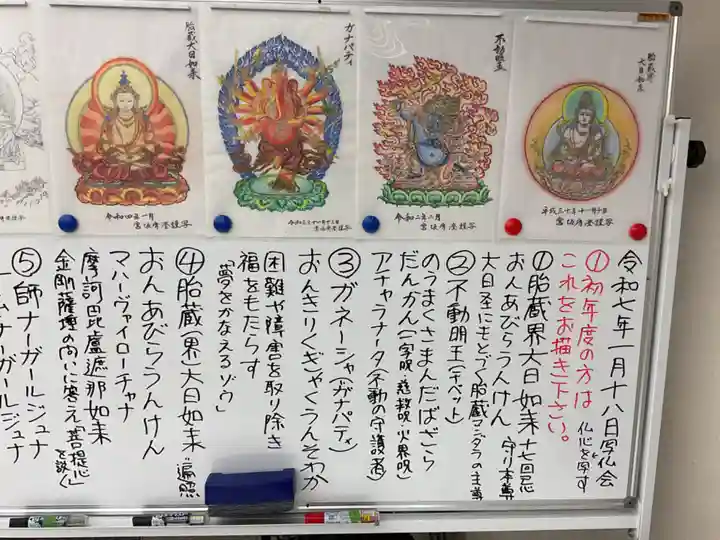 胎蔵大日如来
令和四年一月
ガナパティ
不動明王
令和二年二月
胎蔵界
大日如来
令和七年一月十八日写仏会
仏心を写す
①初年度の方は
これをお描き下さい。
①胎蔵界大日如来 十七回忌
おんあびらうんけん 守り本尊
大日至にもとづく胎蔵マンダラの主尊
②不動明王(チベット)
のうまくさまんだばざら
だんかん(一字呪、慈救呪、火界呪)
アチャラナータ(不動の守護者)
③ガネーシャ(ガナパティ)
おんきりくぎゃくうんそわか
困難や障害を取り除き
福をもたらす
「夢をかなえるゾウ」
④胎蔵(界)大日如来 遍照
おんあびらうんけん
マハーヴァイローチャナ
摩訶毘盧遮那如来
金剛薩埵の向いに答え「菩提心」を説く
⑤師ナーガールジュナ